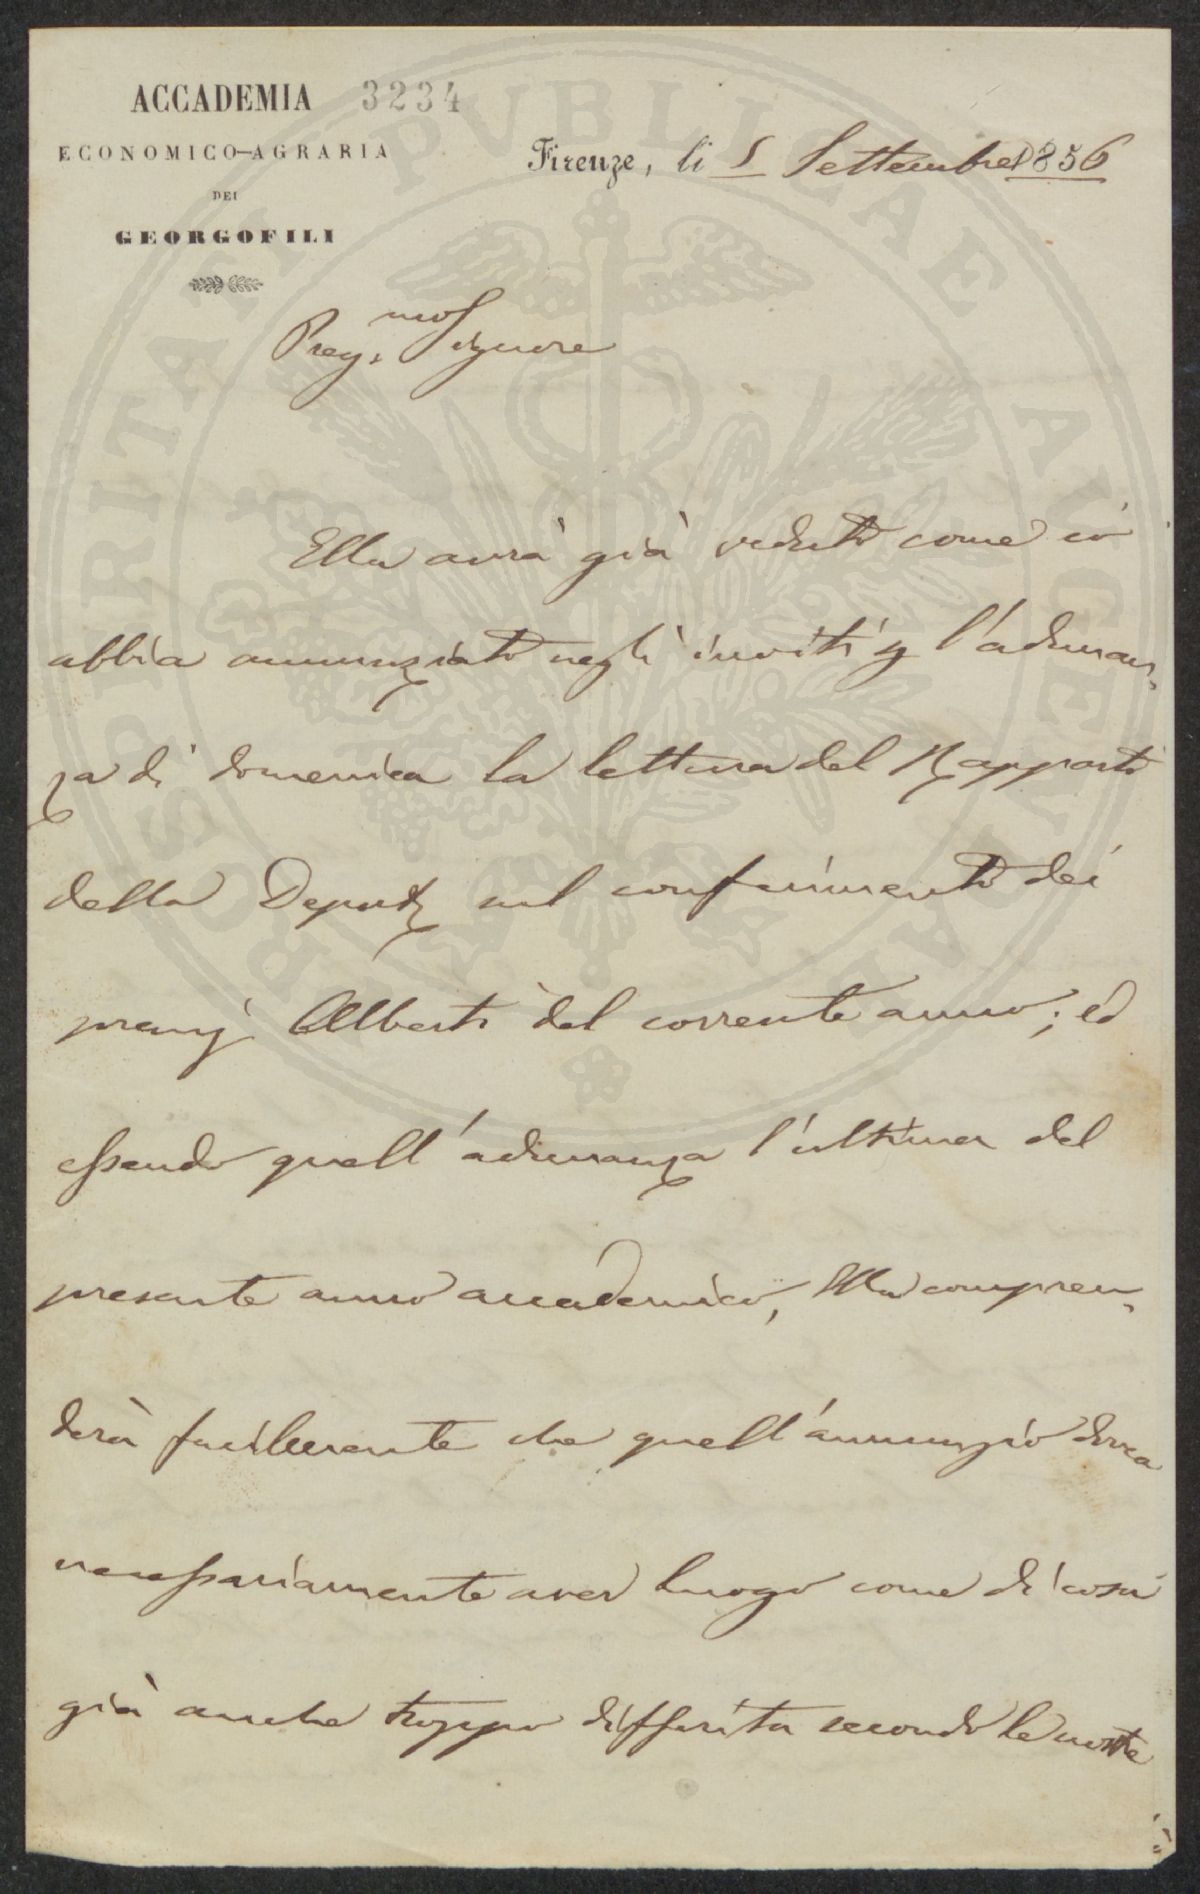 ACCADEMIA 3234
ECONOMICO-AGRARIA
DEI
GEORGOFILI
Firenze, li 5 Settembre 1856
Preg.mo Signore
Ella avrà già veduto come io
abbia annunziato negli inviti p l'adunan-
za di domenica la lettura del Rapporto
della Deput. sul conferimento dei
premj Alberti del corrente anno; ed
essendo quell'adunanza l'ultima del
presente anno accademico, Ella compren-
derà facilmente che quell'annunzio dovea
necessariamente aver luogo come di cosa
già anche troppo differita secondo le nostre
PROSPERITATI PVBLICAE AVGENDAE